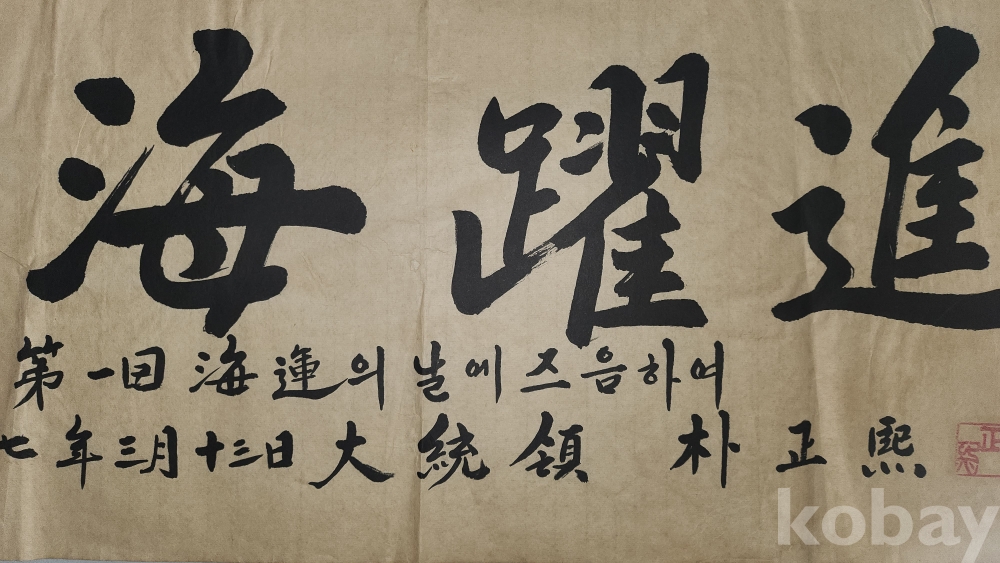 海躍進
第一回 海運의 날에 즈음하여
七年三月十三日 大統領 朴正熙
kobay